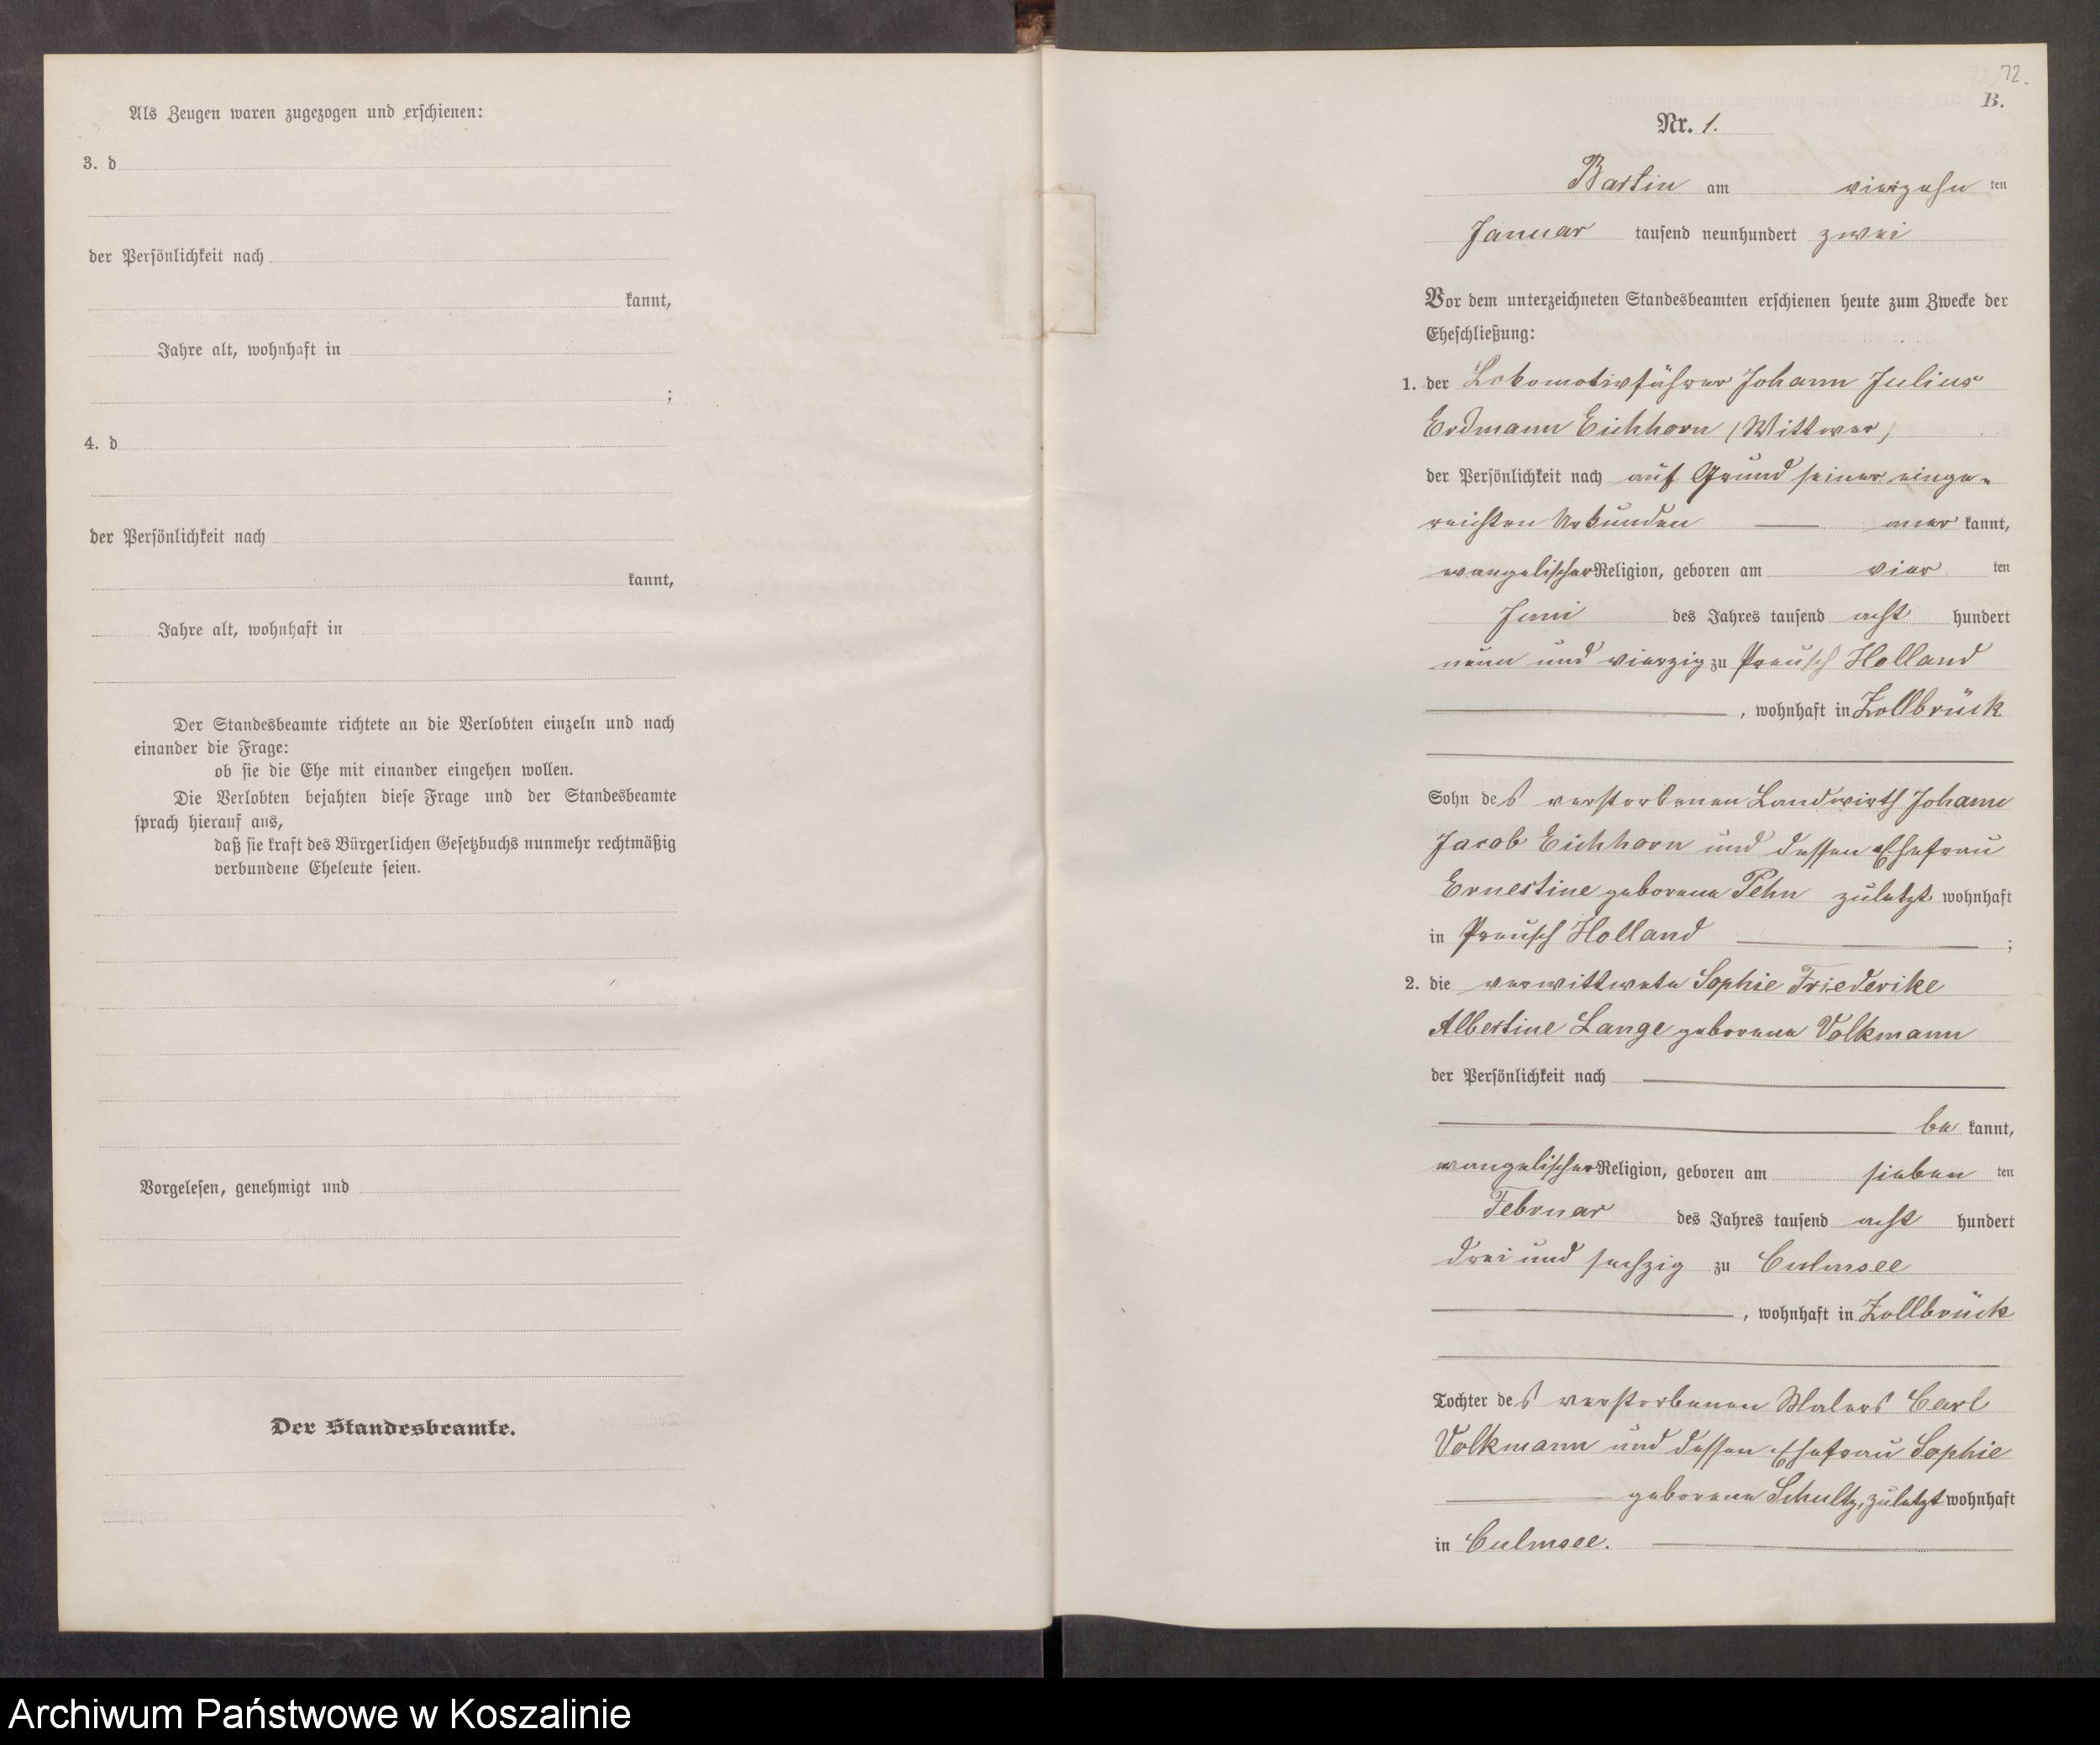 Als Zeugen waren zugezogen und erschienen:
3. d
der Persönlichkeit nach
kannt,
Jahre alt, wohnhaft in
;
4. d
der Persönlichkeit nach
kannt,
Jahre alt, wohnhaft in
Der Standesbeamte richtete an die Verlobten einzeln und nach
einander die Frage:
ob sie die Ehe mit einander eingehen wollen.
Die Verlobten bejahten diese Frage und der Standesbeamte
sprach hierauf aus,
daß sie kraft des Bürgerlichen Gesetzbuchs nunmehr rechtmäßig
verbundene Eheleute seien.
Vorgelesen, genehmigt und
Der Standesbeamte.
72.
B.
Nr. 1.
Bartin am vierzehn ten
Januar tausend neunhundert zwei
Vor dem unterzeichneten Standesbeamten erschienen heute zum Zwecke der
Eheschließung:
1. der Lokomotivführer Johann Julius
Erdmann Eichhorn (Wittwer)
der Persönlichkeit nach auf Grund seiner einge-
reichten Urkunden aner kannt,
evangelischer Religion, geboren am vier ten
Juni des Jahres tausend acht hundert
neun und vierzig zu Preusch Holland
, wohnhaft in Zollbrück
Sohn des verstorbenen Landwirth Johann
Jacob Eichhorn und dessen Ehefrau
Ernestine geborene Pehn zuletzt wohnhaft
in Preusch Holland ;
2. die verwittwete Sophie Friederike
Albertine Lange geborene Volkmann
der Persönlichkeit nach
be kannt,
evangelischer Religion, geboren am sieben ten
Februar des Jahres tausend acht hundert
drei und sechzig zu Culmsee
, wohnhaft in Zollbrück
Tochter des verstorbenen Malers Carl
Volkmann und dessen Ehefrau Sophie
geborene Schultz, zuletzt wohnhaft
in Culmsee.
Archiwum Państwowe w Koszalinie